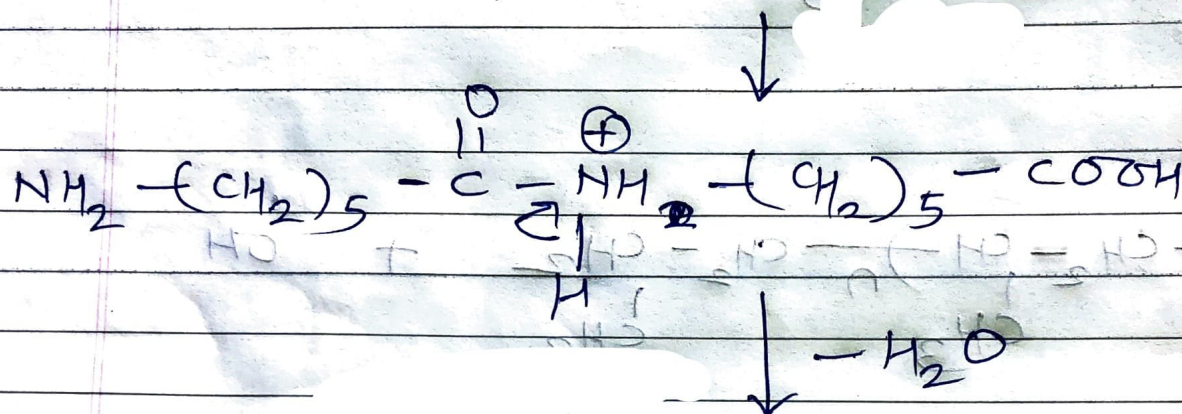 O
|| ⊕
NH₂ -(CH₂)₅ - C - NH -(CH₂)₅ - COOH
|
H
- H₂O